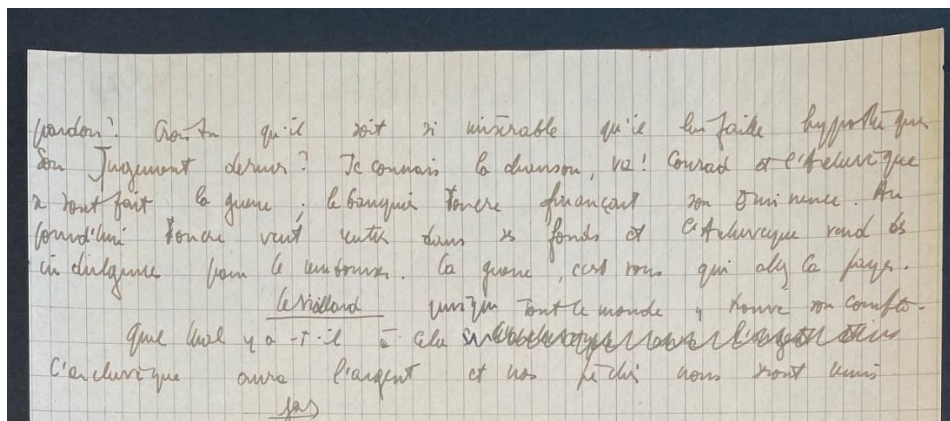 pardon? Crois-tu qu'il soit si misérable qu'il lui faille hypothéquer
son Jugement dernier? Je connais la chanson, va! Conrad et l'Archevêque
se sont fait la guerre; le banquier Foucre finançait son Eminence. Au
jourd'hui Foucre veut rentrer dans ses fonds et l'Archevêque vend des
indulgences pour le rembourser. La guerre, c'est vous qui allez la payer.
Le Vieillard puisque tout le monde y trouve son compte.
Quel mal y a-t-il à cela
L'archevêque aura l'argent et nos péchés nous sont remis